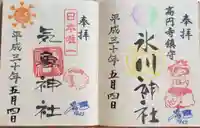 奉拝
高円寺鎮守
氷川神社
平成三十年五月四日
奉拝
日本唯一
気象神社
平成三十年五月四日